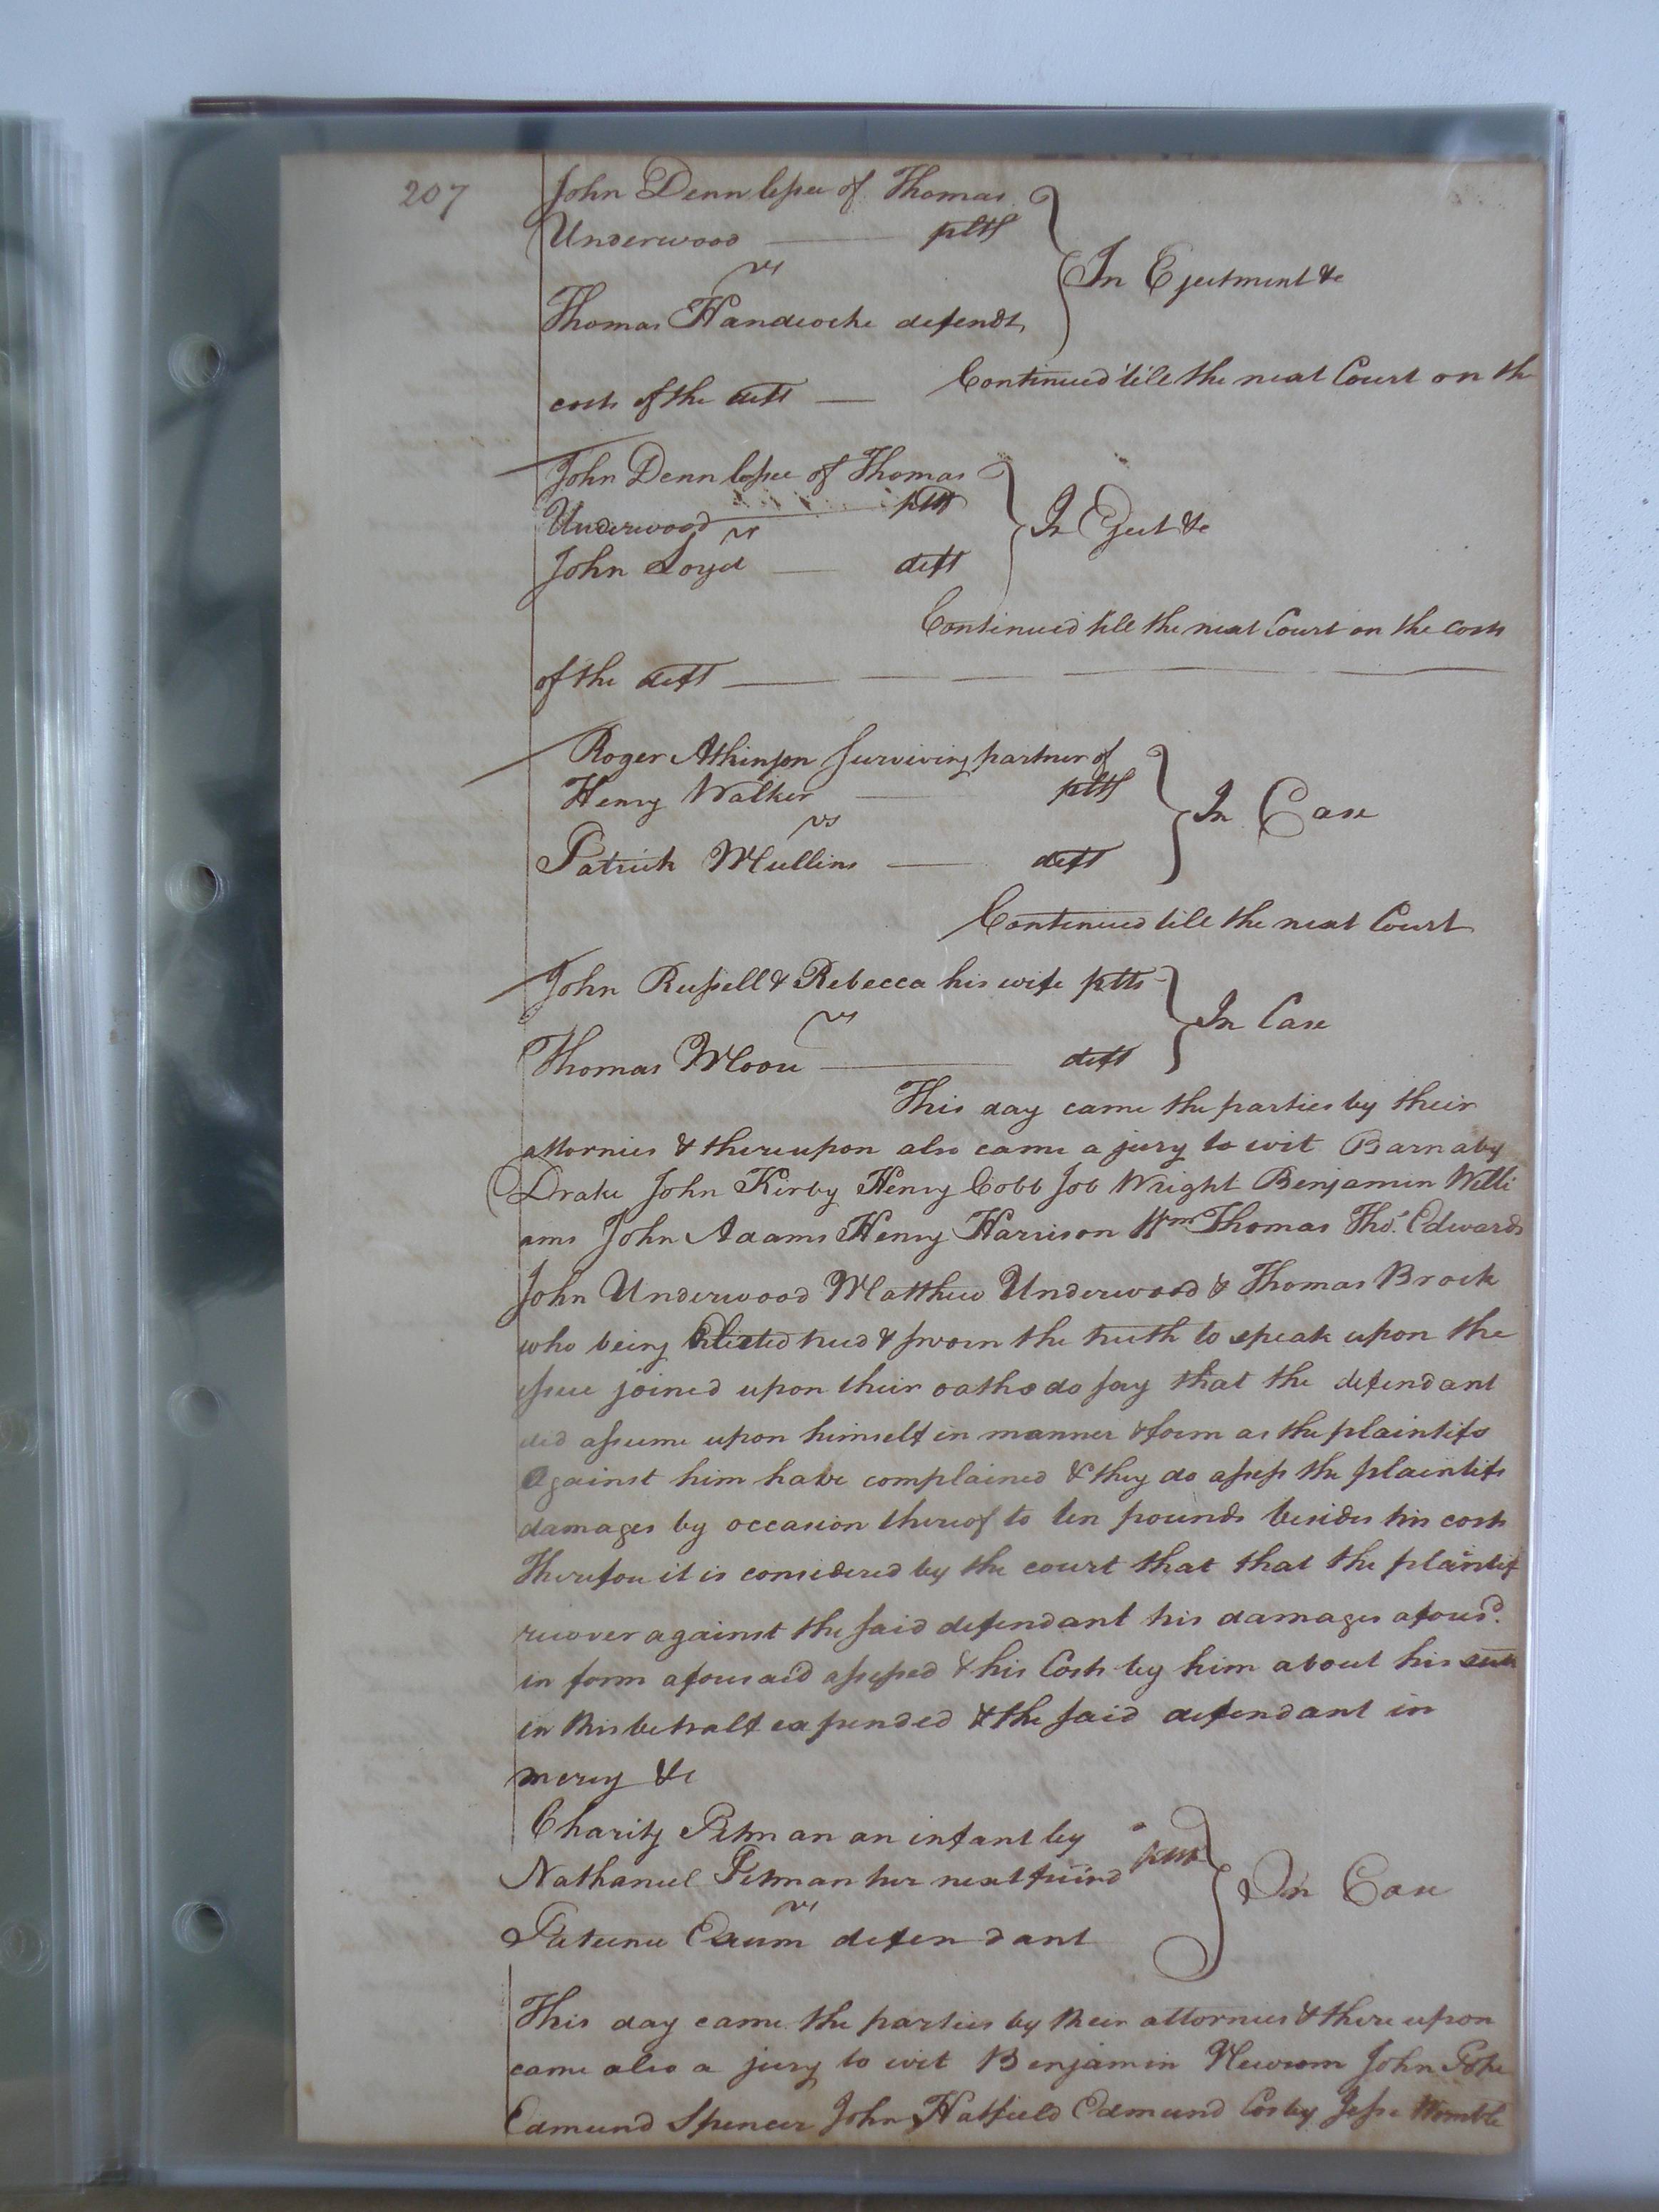 207
John Denn lessee of Thomas
Underwood — pltf
vs
Thomas Handcocke defendt,
In Ejectment &c
Continued 'till the next Court on th
costs of the deft —
John Denn lessee of Thomas
Underwood — pltf
vs
John Loyd — deft
In Eject &c
Continued till the next Court on the costs
of the deft —
Roger Atkinson surviving partner of
Henry Walker — pltf
vs
Patrick Mullins — deft
In Case
Continued till the next Court
John Russell & Rebecca his wife plts
vs
Thomas Moore — deft
In Case
This day came the parties by their
attornies & thereupon also came a jury to wit Barnaby
Drake John Kirby Henry Cobb Job Wright Benjamin Willi
ams John Adams Henry Harrison Wm Thomas Tho.s Edwards
John Underwood Matthew Underwood & Thomas Brock
who being Elected tried & sworn the truth to speak upon the
issue joined upon their oaths do say that the defendant
did assume upon himself in manner & form as the plaintifs
against him have complained & they do assess the plaintifs
damages by occasion thereof to ten pounds besides his costs
Therefore it is considered by the court that that the plaintif
recover against the said defendant his damages afores.d
in form aforesaid assessed & his Costs by him about his suit
in this behalf expended & the said defendant in
mercy &c
Charity Pitman an infant by
Nathaniel Pitman her next friend
vs
defendant
In Case
This day came the parties by their attornies & there upon
came also a jury to wit Benjamin Newsom John Pope
Edmund Spencer John Hatfield Edmund Cosby Jesse Womble